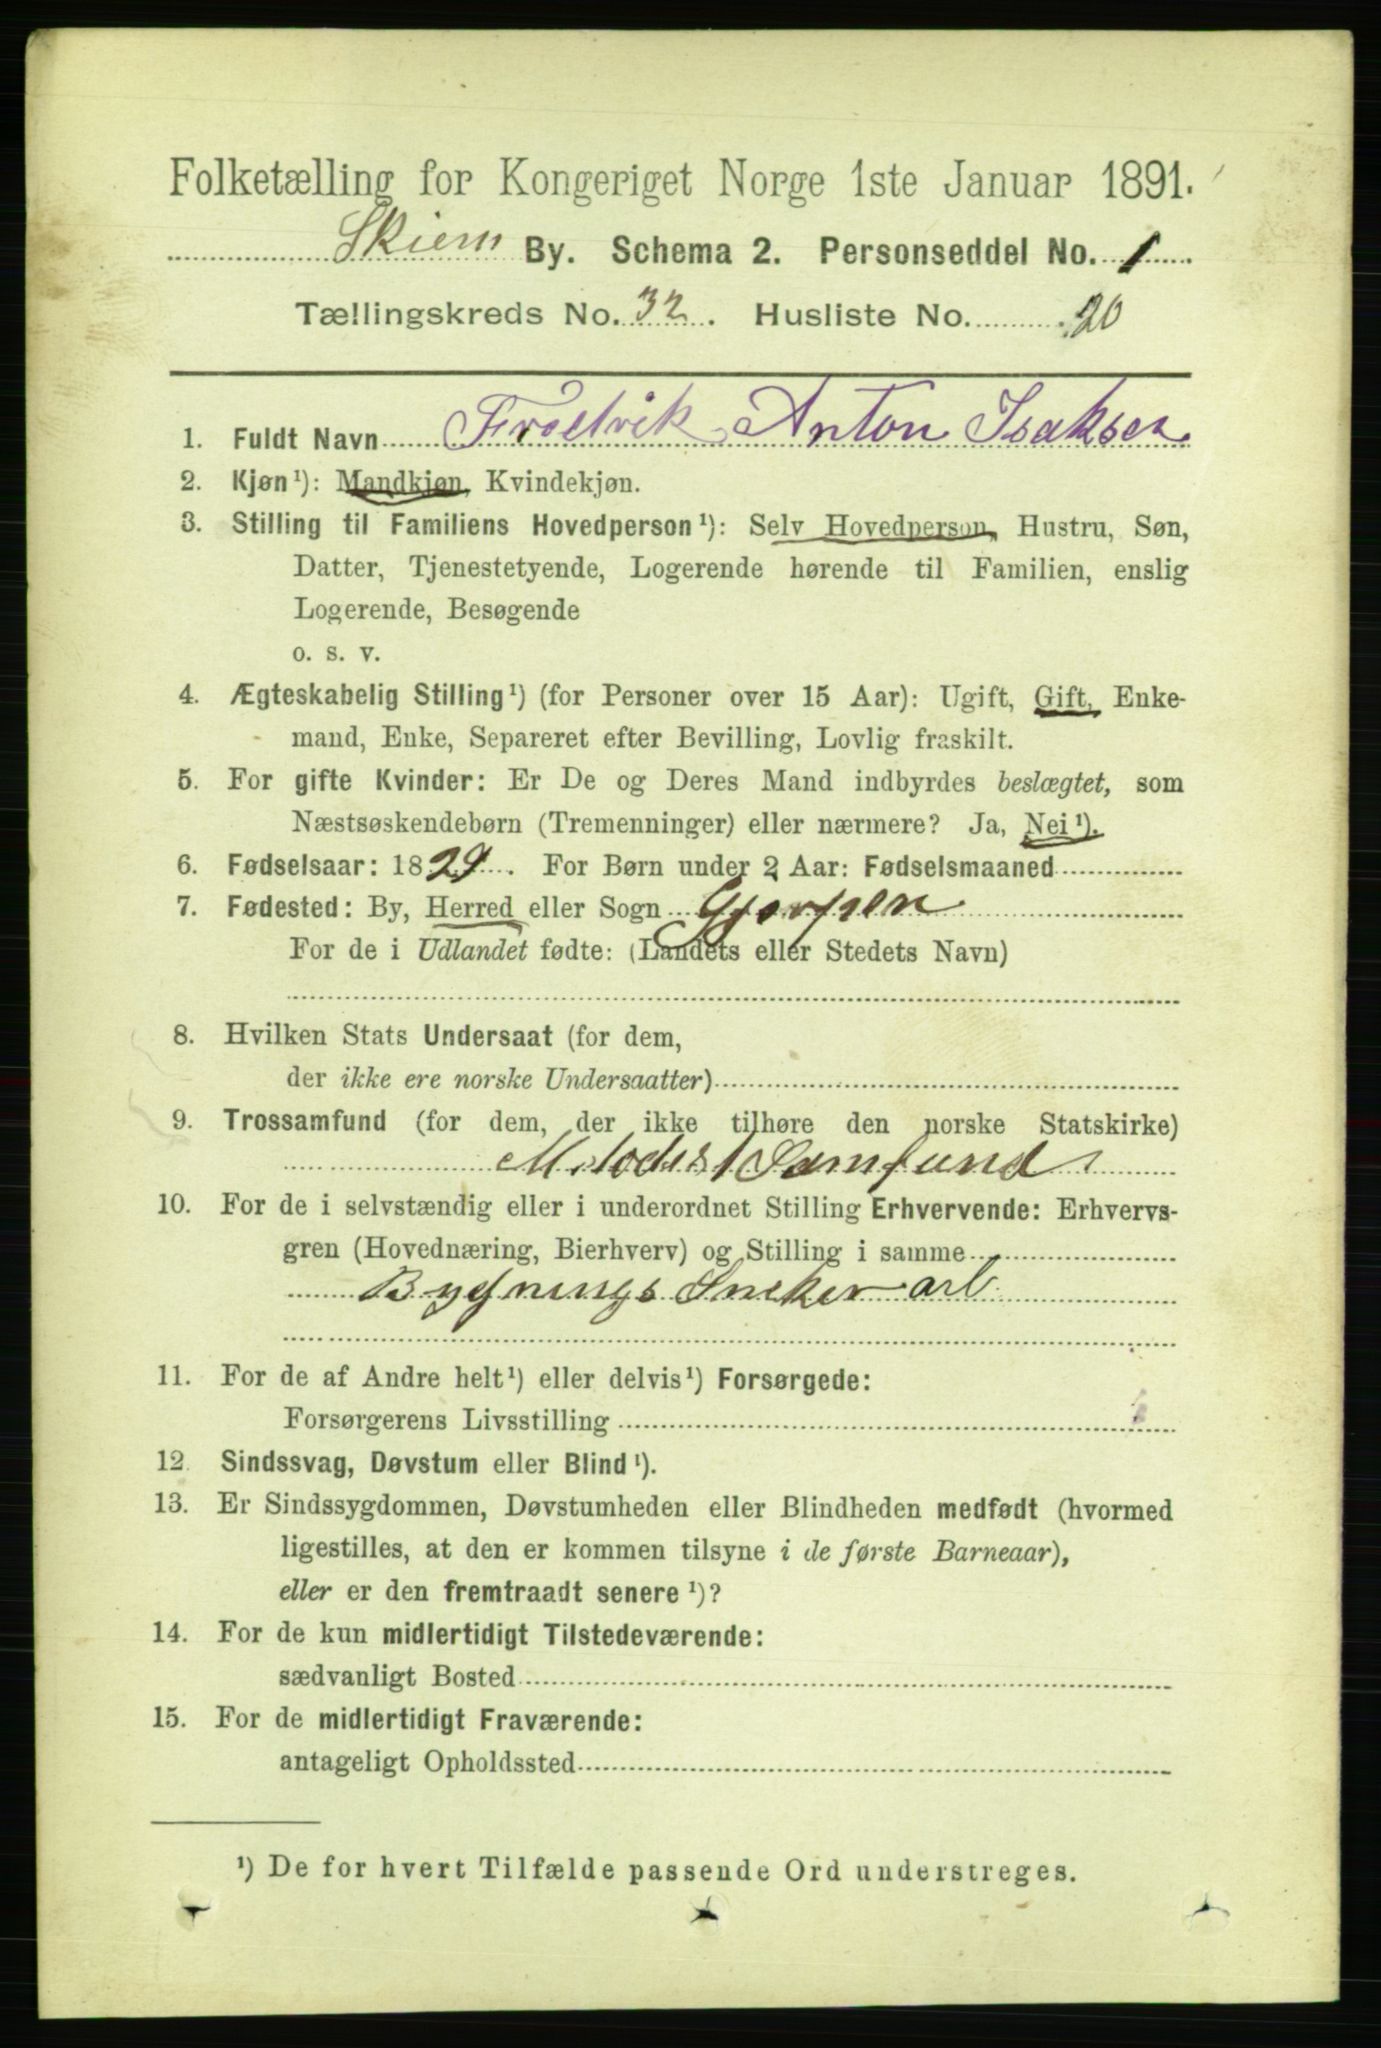 Folketælling for Kongeriget Norge 1ste Januar 1891.
Skiens By. Schema 2. Personseddel No. 1
Tællingskreds No. 32. Husliste No. 20
1. Fuldt Navn Fredrik Anton Isaksen
2. Kjøn¹): Mandkjøn, Kvindekjøn.
3. Stilling til Familiens Hovedperson¹): Selv Hovedperson, Hustru, Søn,
Datter, Tjenestetyende, Logerende hørende til Familien, enslig
Logerende, Besøgende
o. s. v.
4. Ægteskabelig Stilling¹) (for Personer over 15 Aar): Ugift, Gift, Enke-
mand, Enke, Separeret efter Bevilling, Lovlig fraskilt.
5. For gifte Kvinder: Er De og Deres Mand indbyrdes beslægtet, som
Næstsøskendebørn (Tremenninger) eller nærmere? Ja, Nei¹).
6. Fødselsaar: 1829. For Børn under 2 Aar: Fødselsmaaned
7. Fødested: By, Herred eller Sogn Gjerpen
For de i Udlandet fødte: (Landets eller Stedets Navn)
8. Hvilken Stats Undersaat (for dem,
der ikke ere norske Undersaatter)
9. Trossamfund (for dem, der ikke tilhøre den norske Statskirke)
Metodist Samfund
10. For de i selvstændig eller i underordnet Stilling Erhvervende: Erhvervs-
gren (Hovednæring, Bierhverv) og Stilling i samme
Bygnings Sneker arb.
11. For de af Andre helt¹) eller delvis¹) Forsørgede:
Forsørgerens Livsstilling
12. Sindssvag, Døvstum eller Blind¹).
13. Er Sindssygdommen, Døvstumheden eller Blindheden medfødt (hvormed
ligestilles, at den er kommen tilsyne i de første Barneaar),
eller er den fremtraadt senere¹)?
14. For de kun midlertidigt Tilstedeværende:
sædvanligt Bosted
15. For de midlertidigt Fraværende:
antageligt Opholdssted
¹) De for hvert Tilfælde passende Ord understreges.